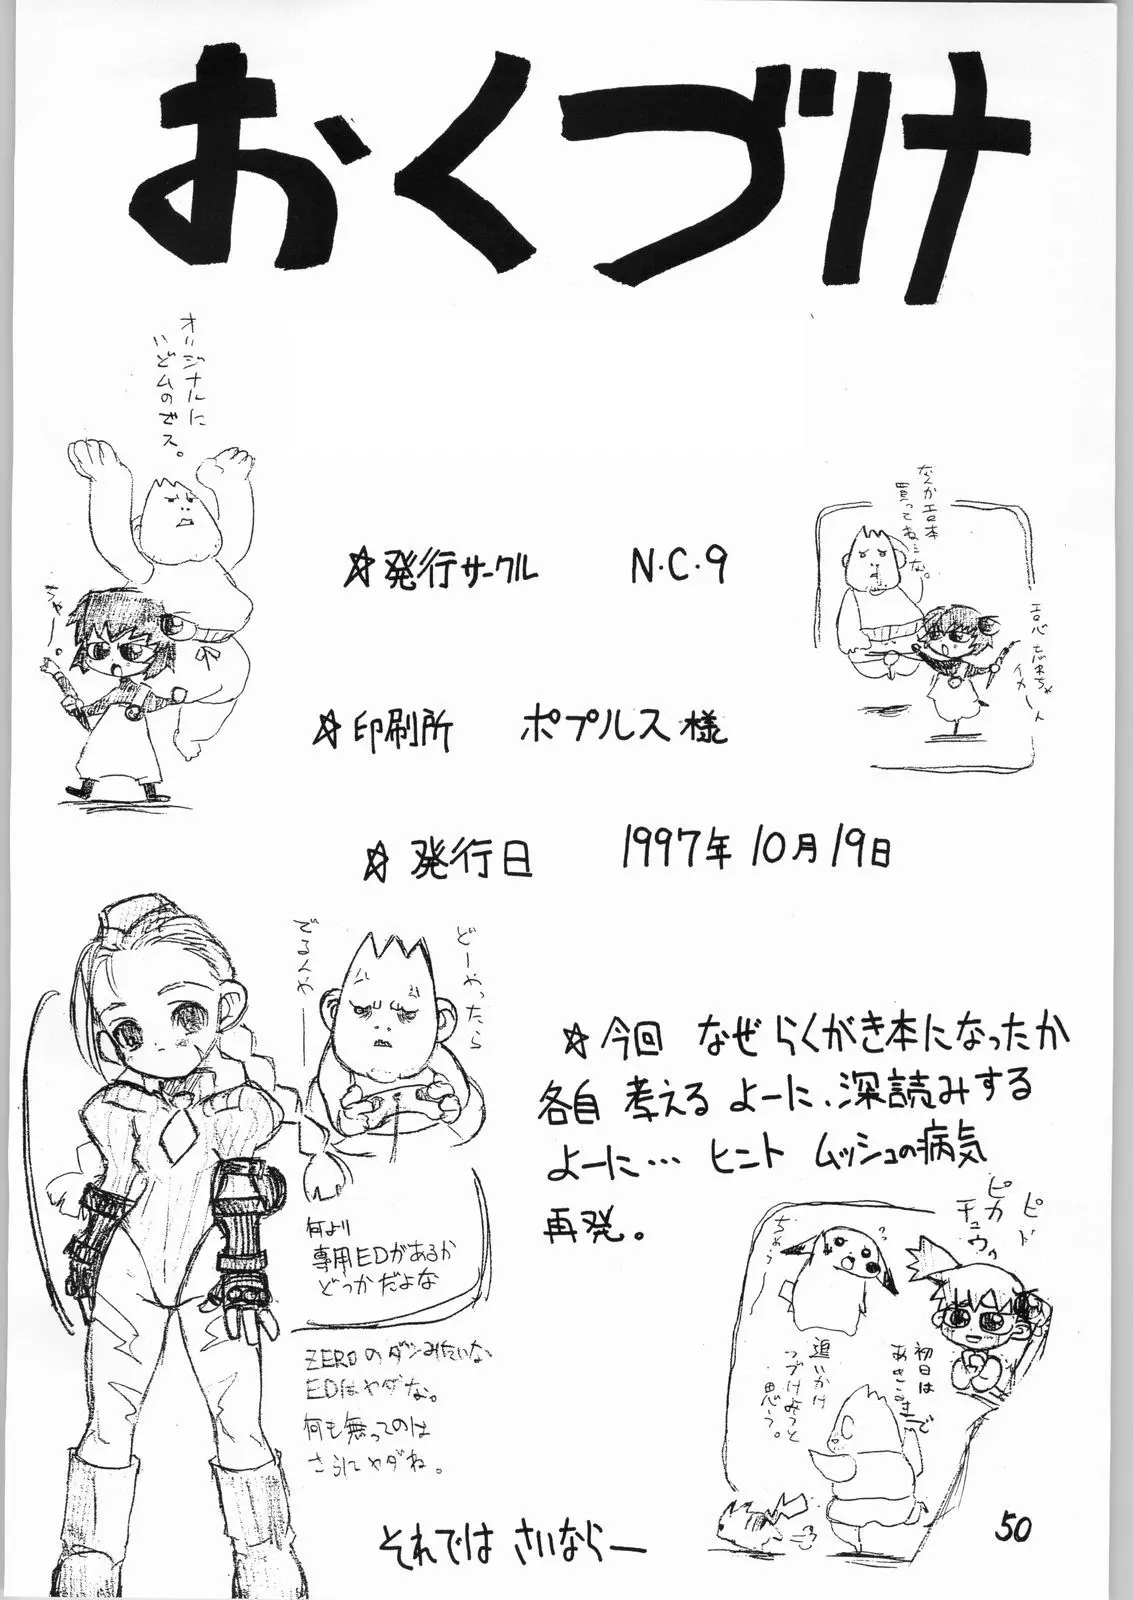 おくづけ
オリジナルに
いどムのでス。
ちゃー。
なんか エロ本
買ってねェな。
☆発行サークル N・C・9
☆印刷所 ポプルス様
☆発行日 1997年10月19日
どーやったら
でるんやー
☆今回 なぜ らくがき本になったか
各自 考える よーに、深読みする
よーに… ヒント ムッシュの病気
再発。
何より
専用EDがあるか
どっかだよな
ZEROのダンみたいな
EDはヤダな。
何も無ってのは
さらにヤダね。
ピカ
チュウゥ
ちゃぅ〜
追いかけ
つづけようと
思う。
初日は
それでは さいならー
50